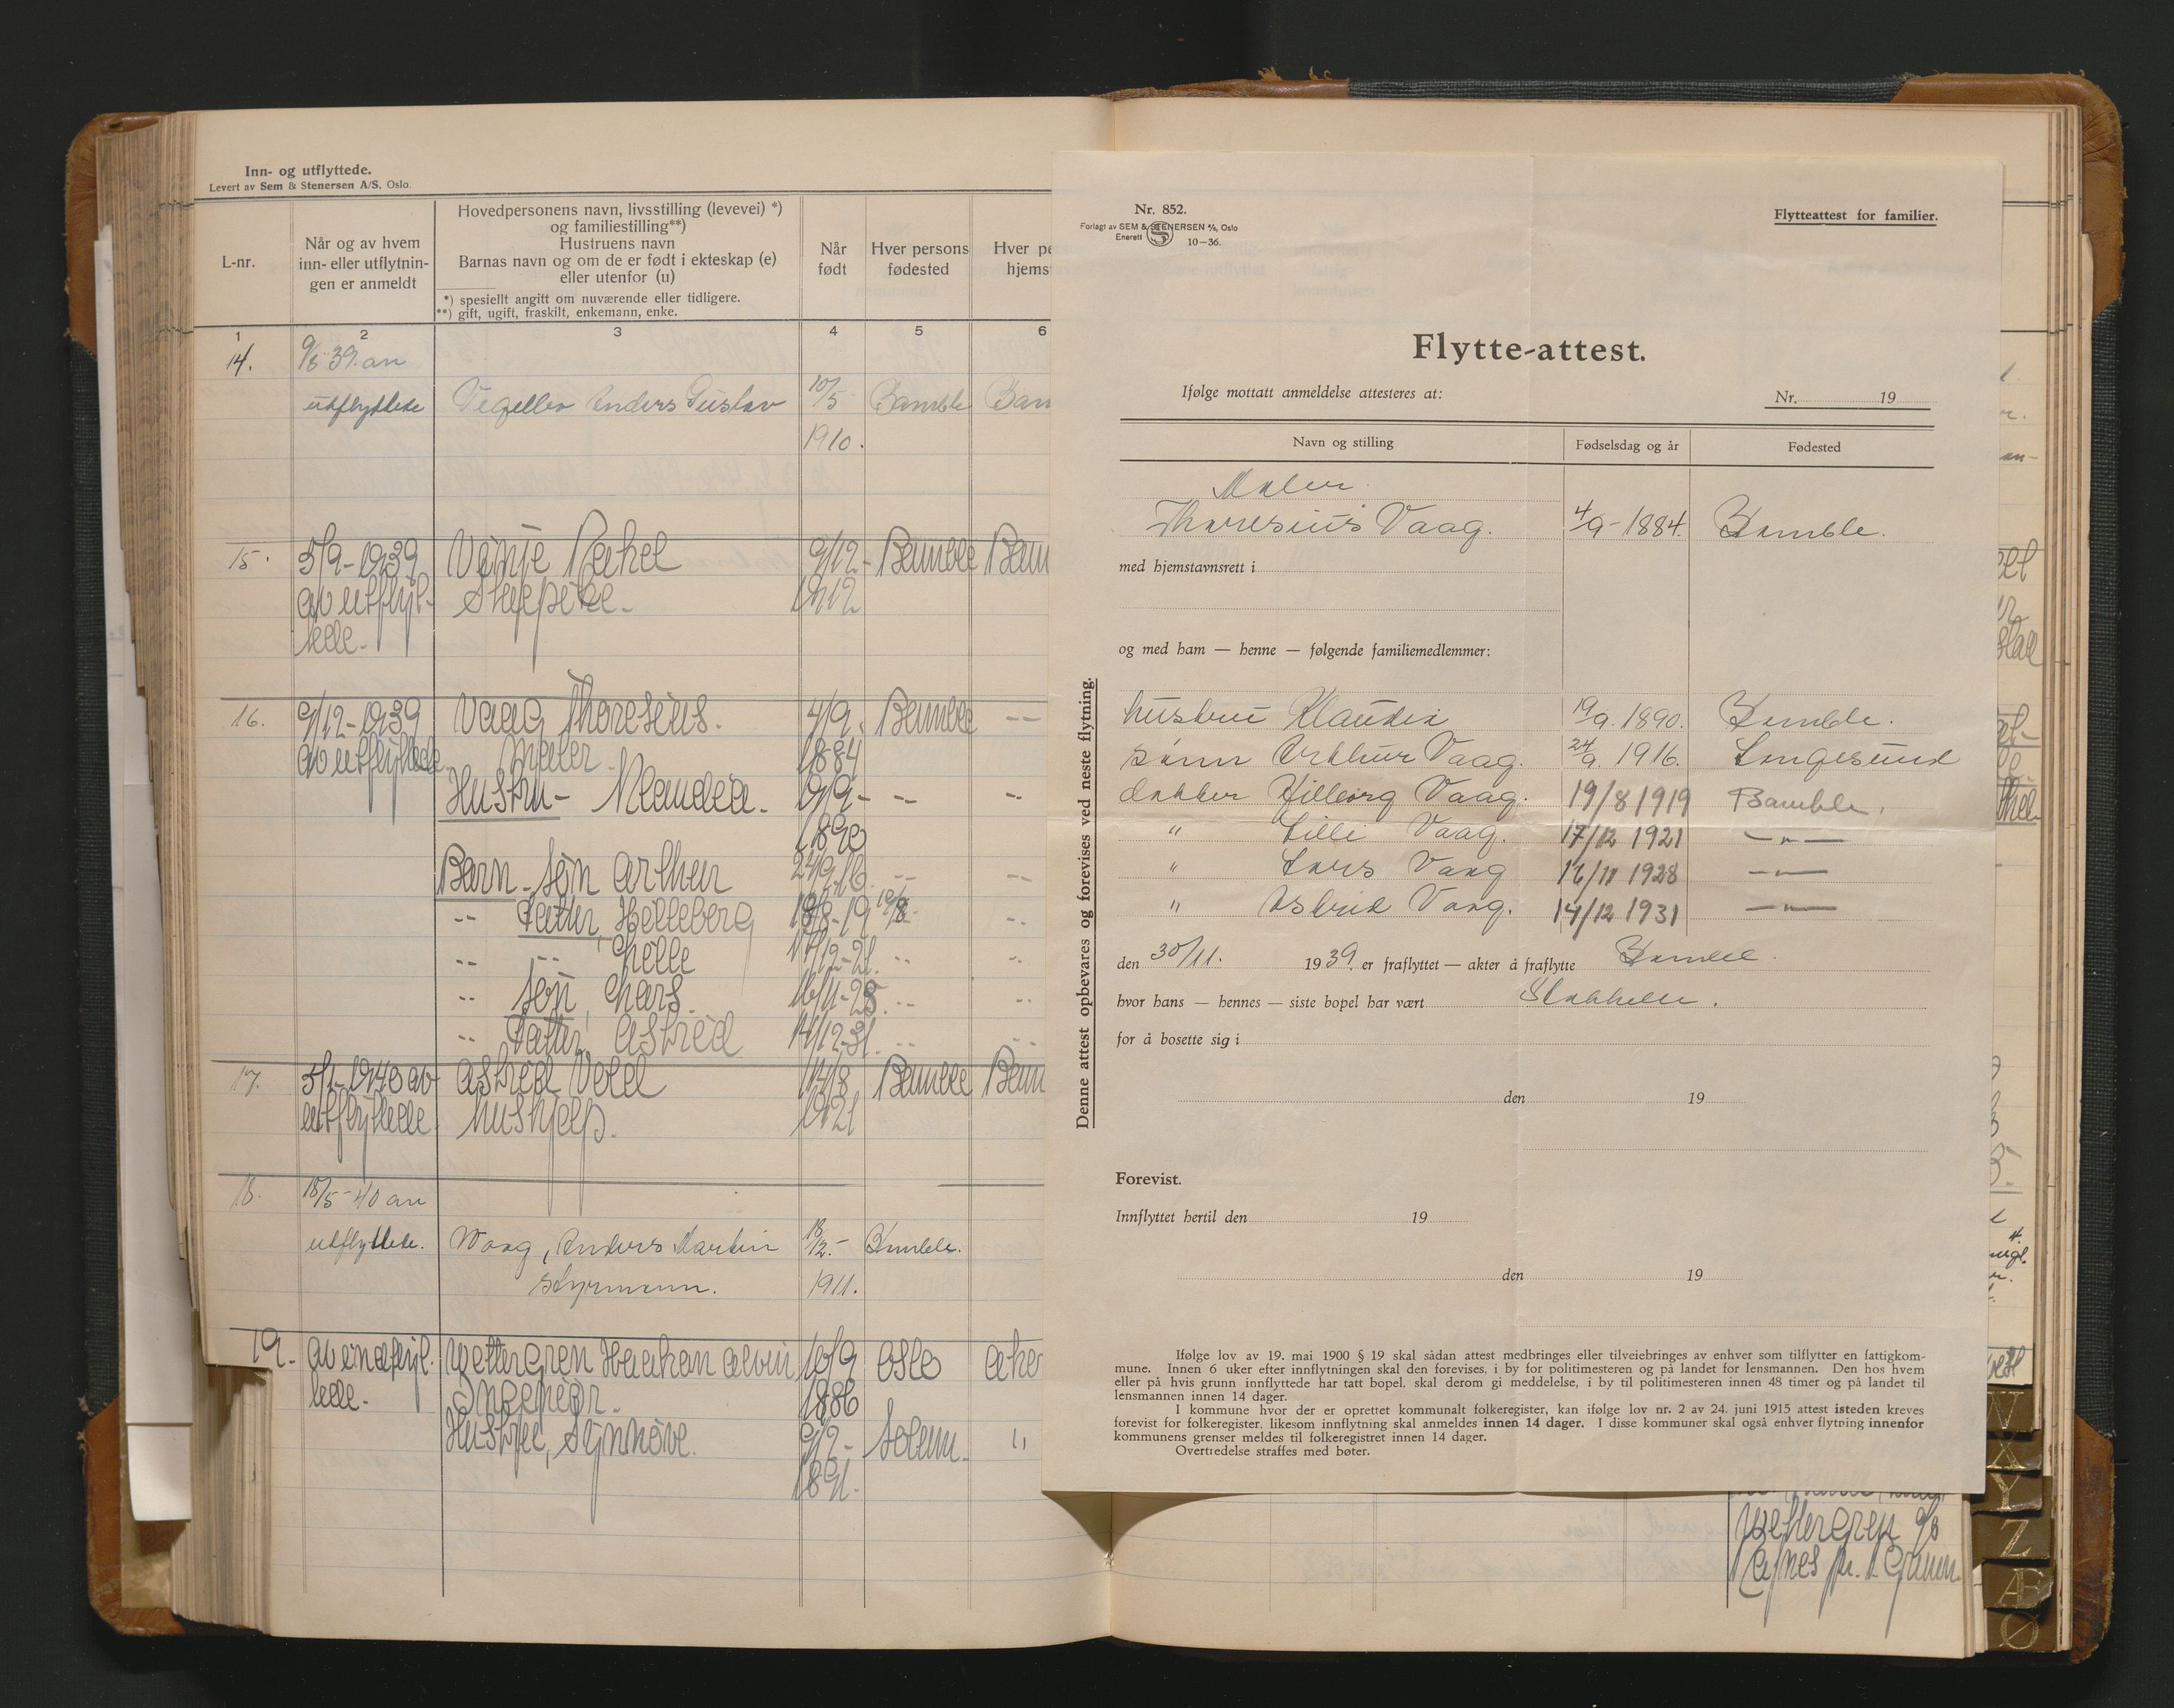 Inn- og utflyttede.
Levert av Sem & Stenersen A/S, Oslo.
L-nr.
Når og av hvem
inn- eller utflytnin-
gen er anmeldt
Hovedpersonens navn, livsstilling (levevei) *)
og familiestilling**)
Hustruens navn
Barnas navn og om de er født i ekteskap (e)
eller utenfor (u)
*) spesiellt angitt om nuværende eller tidligere.
**) gift, ugift, fraskilt, enkemann, enke.
Når
født
Hver persons
fødested
Hver pe
hjemst
1 2 3 4 5 6
14. 9/5 39. av
utflyttede Anders Gustav 10/5 Bamble Bam
1910.
15. 5/9-1939 Vinje Rakel 9/12- Bamble Bam
av utflyt- 1912
tede-
16. 9/12-1939 Vaag Thoresius. 4/9. Bamble --
av utflyttede Maler. 1884
Hustru- Klaudia. 19/9- -- --
1890
Barn- søn Arthur 24/9-16. -- --
-- Datter, Hilleborg 19/8-19 19/8. --
-- -- Lille 17/12-21. -- --
-- søn, Lars 16/11-28. -- --
-- Datter Astrid 14/12-31. -- --
17. 5/1-1940 av Astrid Vold 14/8 Bamble Bam
utflyttede hushjelp. 1921
18. 18/5-40 av
utflyttede. Waag, Anders Martin 18/12.- Bamble.
Styrmann. 1911.
19. av indflyt- Wettergren Haakon Alvin 10/9 Oslo Aker
tede- Ingeniør. 1886
Hustru, Synnøve. 9/2- Solum. "
1891.
Nr. 852.
Forlagt av SEM & STENERSEN A/S, Oslo
Enerett S 10-36.
Flytteattest for familier.
Flytte-attest.
Ifølge mottatt anmeldelse attesteres at:
Nr. 19
Navn og stilling Fødselsdag og år Fødested
Maler
Thoresius Vaag. 4/9-1884. Bamble.
med hjemstavnsrett i
og med ham — henne — følgende familiemedlemmer:
hustru Klaudia 19/9. 1890. Bamble.
sønn Arthur Vaag. 24/9. 1916. Langesund
datter Hilborg Vaag. 19/8 1919 Bamble.
" Lilli Vaag. 17/12 1921 — " —
" Lars Vaag 16/11 1928 — " —
" Astrid Vaag. 14/12 1931 — " —
den 30/11. 1939. er fraflyttet — akter å fraflytte Bamble.
hvor hans — hennes — siste bopel har vært Stathelle.
for å bosette sig i
den 19
Forevist.
Innflyttet hertil den 19
den 19
Ifølge lov av 19. mai 1900 § 19 skal sådan attest medbringes eller tilveiebringes av enhver som tilflytter en fattigkom-
mune. Innen 6 uker efter innflytningen skal den forevises, i by for politimesteren og på landet for lensmannen. Den hos hvem
eller på hvis grunn innflyttede har tatt bopel. skal derom gi meddelelse, i by til politimesteren innen 48 timer og på landet til
lensmannen innen 14 dager.
I kommune hvor der er oprettet kommunalt folkeregister, kan ifølge lov nr. 2 av 24. juni 1915 attest isteden kreves
forevist for folkeregister. likesom innflytning skal anmeldes innen 14 dager. I disse kommuner skal også enhver flytning innenfor
kommunens grenser meldes til folkeregistret innen 14 dager.
Overtredelse straffes med bøter.
Denne attest opbevares og forevises ved neste flytning.
Wettergren
Agnes
V
X
Y
Z
Æ
Ø